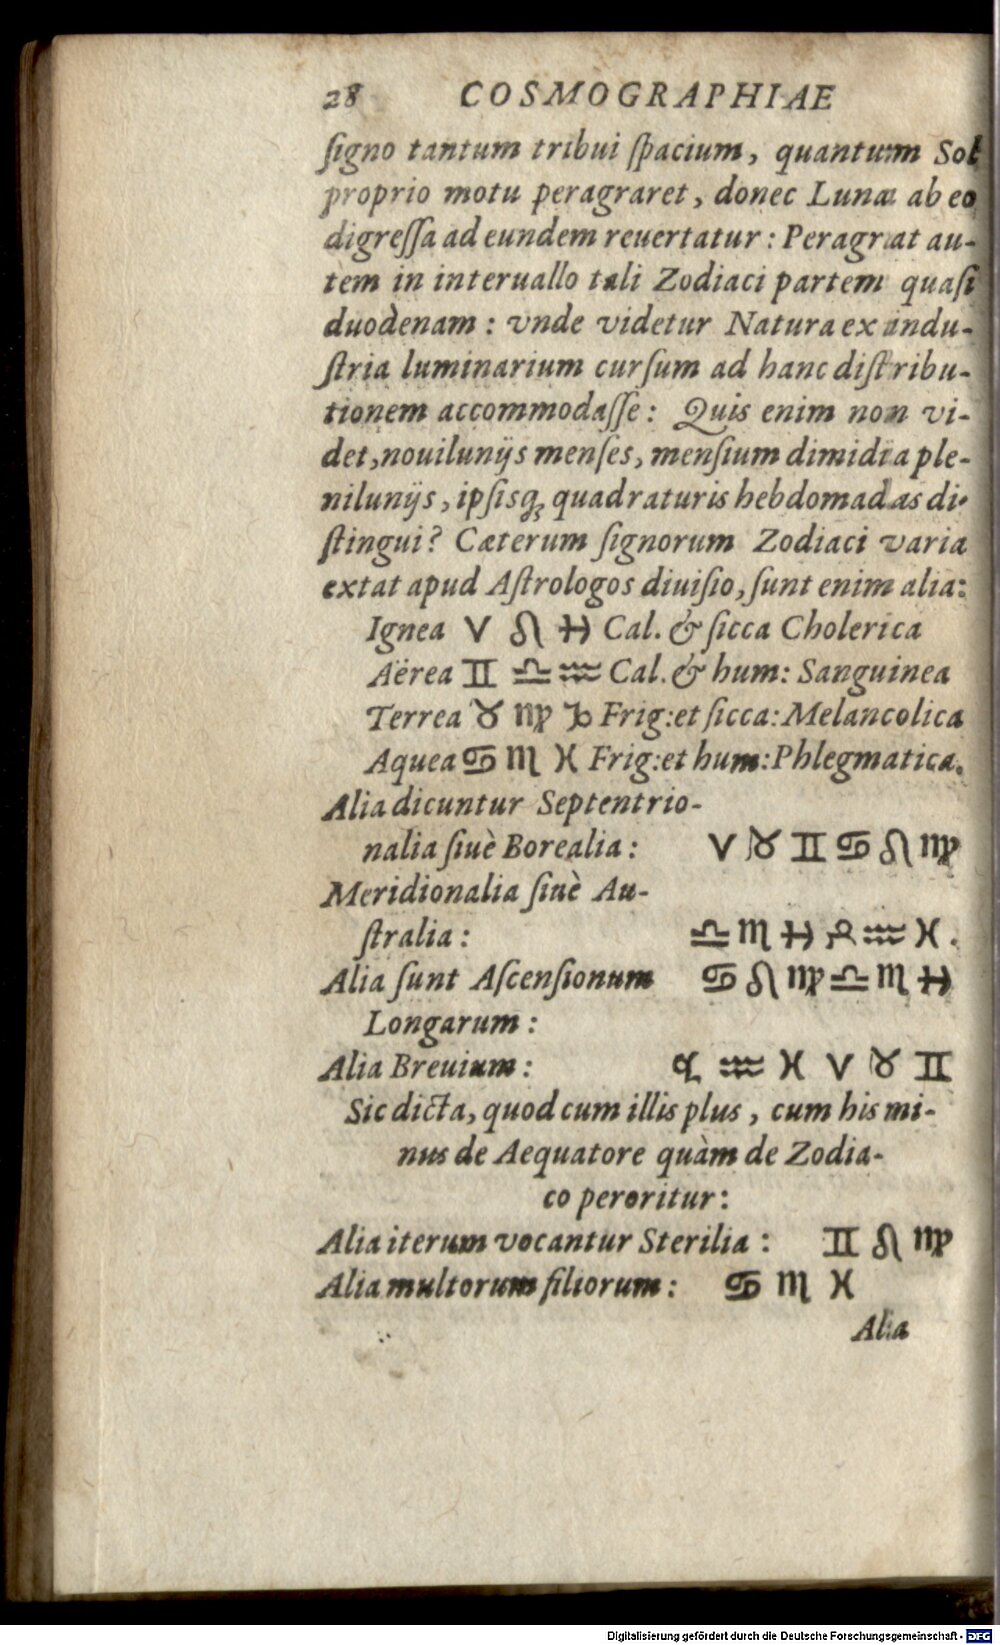 28 COSMOGRAPHIAE
ſigno tantum tribui ſpacium, quantum Sol
proprio motu peragraret, donec Luna ab eo
digreſſa ad eundem reuertatur: Peragrat au-
tem in interuallo tali Zodiaci partem quaſi
duodenam: vnde videtur Natura ex indu-
ſtria luminarium curſum ad hanc diſtribu-
tionem accommodaſſe: Quis enim non vi-
det, nouilunijs menſes, menſium dimidia ple-
nilunijs, ipſisq; quadraturis hebdomadas di-
ſtingui? Cæterum ſignorum Zodiaci varia
extat apud Aſtrologos diuiſio, ſunt enim alia:
Ignea ♈ ♌ ♐ Cal. & ſicca Cholerica
Aërea ♊ ♎ ♒ Cal. & hum: Sanguinea
Terrea ♉ ♍ ♑ Frig: et ſicca: Melancolica
Aquea ♋ ♏ ♓ Frig: et hum: Phlegmatica.
Alia dicuntur Septentrio-
nalia ſiuè Borealia: ♈ ♉ ♊ ♋ ♌ ♍
Meridionalia ſiuè Au-
ſtralia: ♎ ♏ ♐ ♑ ♒ ♓.
Alia ſunt Aſcenſionum ♋ ♌ ♍ ♎ ♏ ♐
Longarum:
Alia Breuium: ♑ ♒ ♓ ♈ ♉ ♊
Sic dicta, quod cum illis plus, cum his mi-
nus de Aequatore quàm de Zodia-
co peroritur:
Alia iterum vocantur Sterilia: ♊ ♌ ♍
Alia multorum filiorum: ♋ ♏ ♓
Alia
Digitalisierung gefördert durch die Deutsche Forschungsgemeinschaft - DFG